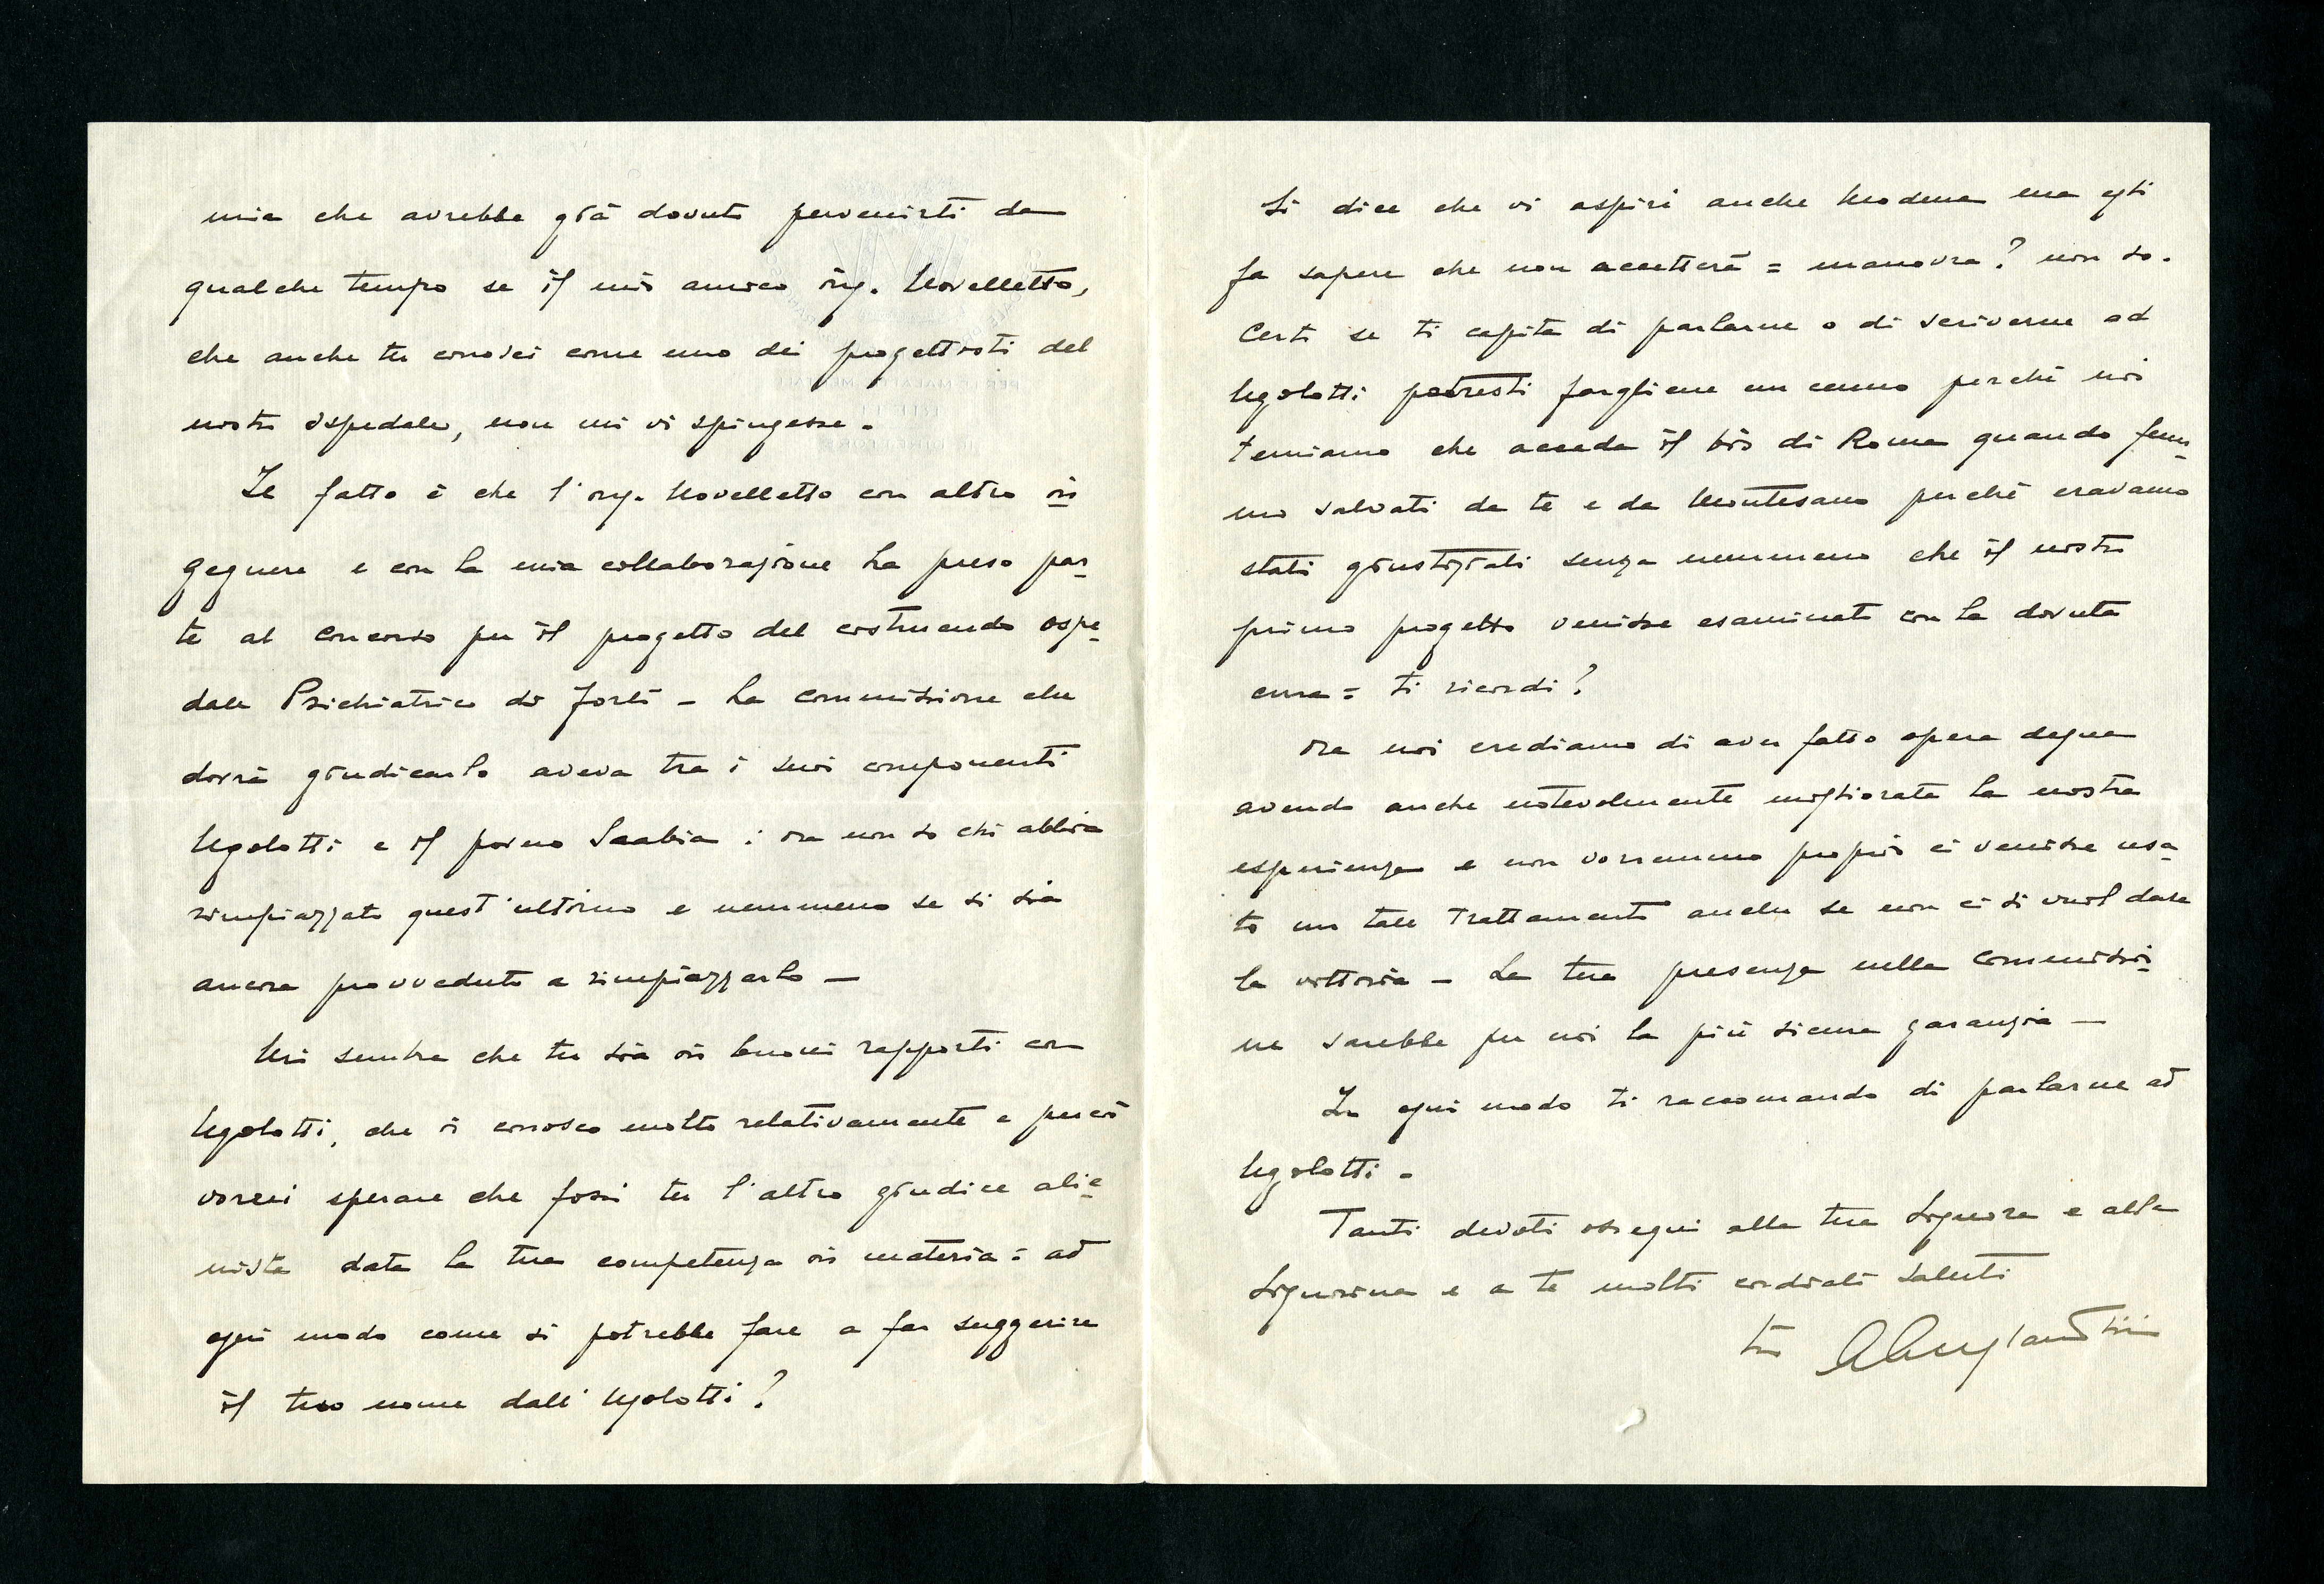 mia che avrebbe già dovuto pervenirti da
qualche tempo se il mio amico ing. Novelletto,
che anche tu conosci come uno dei progettisti del
nostro Ospedale, non mi vi spingesse -
Il fatto è che l'ing. Novelletto con altro in
gegnere e con la mia collaborazione ha preso par
te al concorso per il progetto del costruendo ospe
dale Psichiatrico di Forlì - La Commissione che
dovrà giudicarlo aveva tra i suoi componenti
Ugolotti e il povero Scabia : ora non so chi abbia
rimpiazzato quest'ultimo e nemmeno se si sia
ancora provveduto a rimpiazzarlo -
Mi sembra che tu sia in buoni rapporti con
Ugolotti, che io conosco molto relativamente e perciò
vorrei sperare che fossi tu l'altro giudice alie
nista data la tua competenza in materia = ad
ogni modo come si potrebbe fare a far suggerire
il tuo nome dall'Ugolotti?
Si dice che vi aspiri anche Modena ma egli
fa sapere che non accetterà = manovra? non so.
Certo se ti capita di parlarne o di scriverne ad
Ugolotti potresti fargliene un cenno perchè noi
temiamo che acceda il bis di Roma quando fum
mo salvati da te e da Montesano perchè eravamo
stati giustiziati senza nemmeno che il nostro
primo progetto venisse esaminato con la dovuta
cura = ti ricordi?
Ora noi crediamo di aver fatto opera degna
avendo anche notevolmente migliorata la nostra
esperienza e non vorremmo proprio ci venisse usa
to un tale trattamento anche se non ci si vuol dare
la vittoria - La tua presenza nella Commissio
ne sarebbe per noi la più sicura garanzia -
In ogni modo ti raccomando di parlarne ad
Ugolotti -
Tanti devoti ossequi alla tua Signora e alla
Signorina e a te molti cordiali saluti
tuo